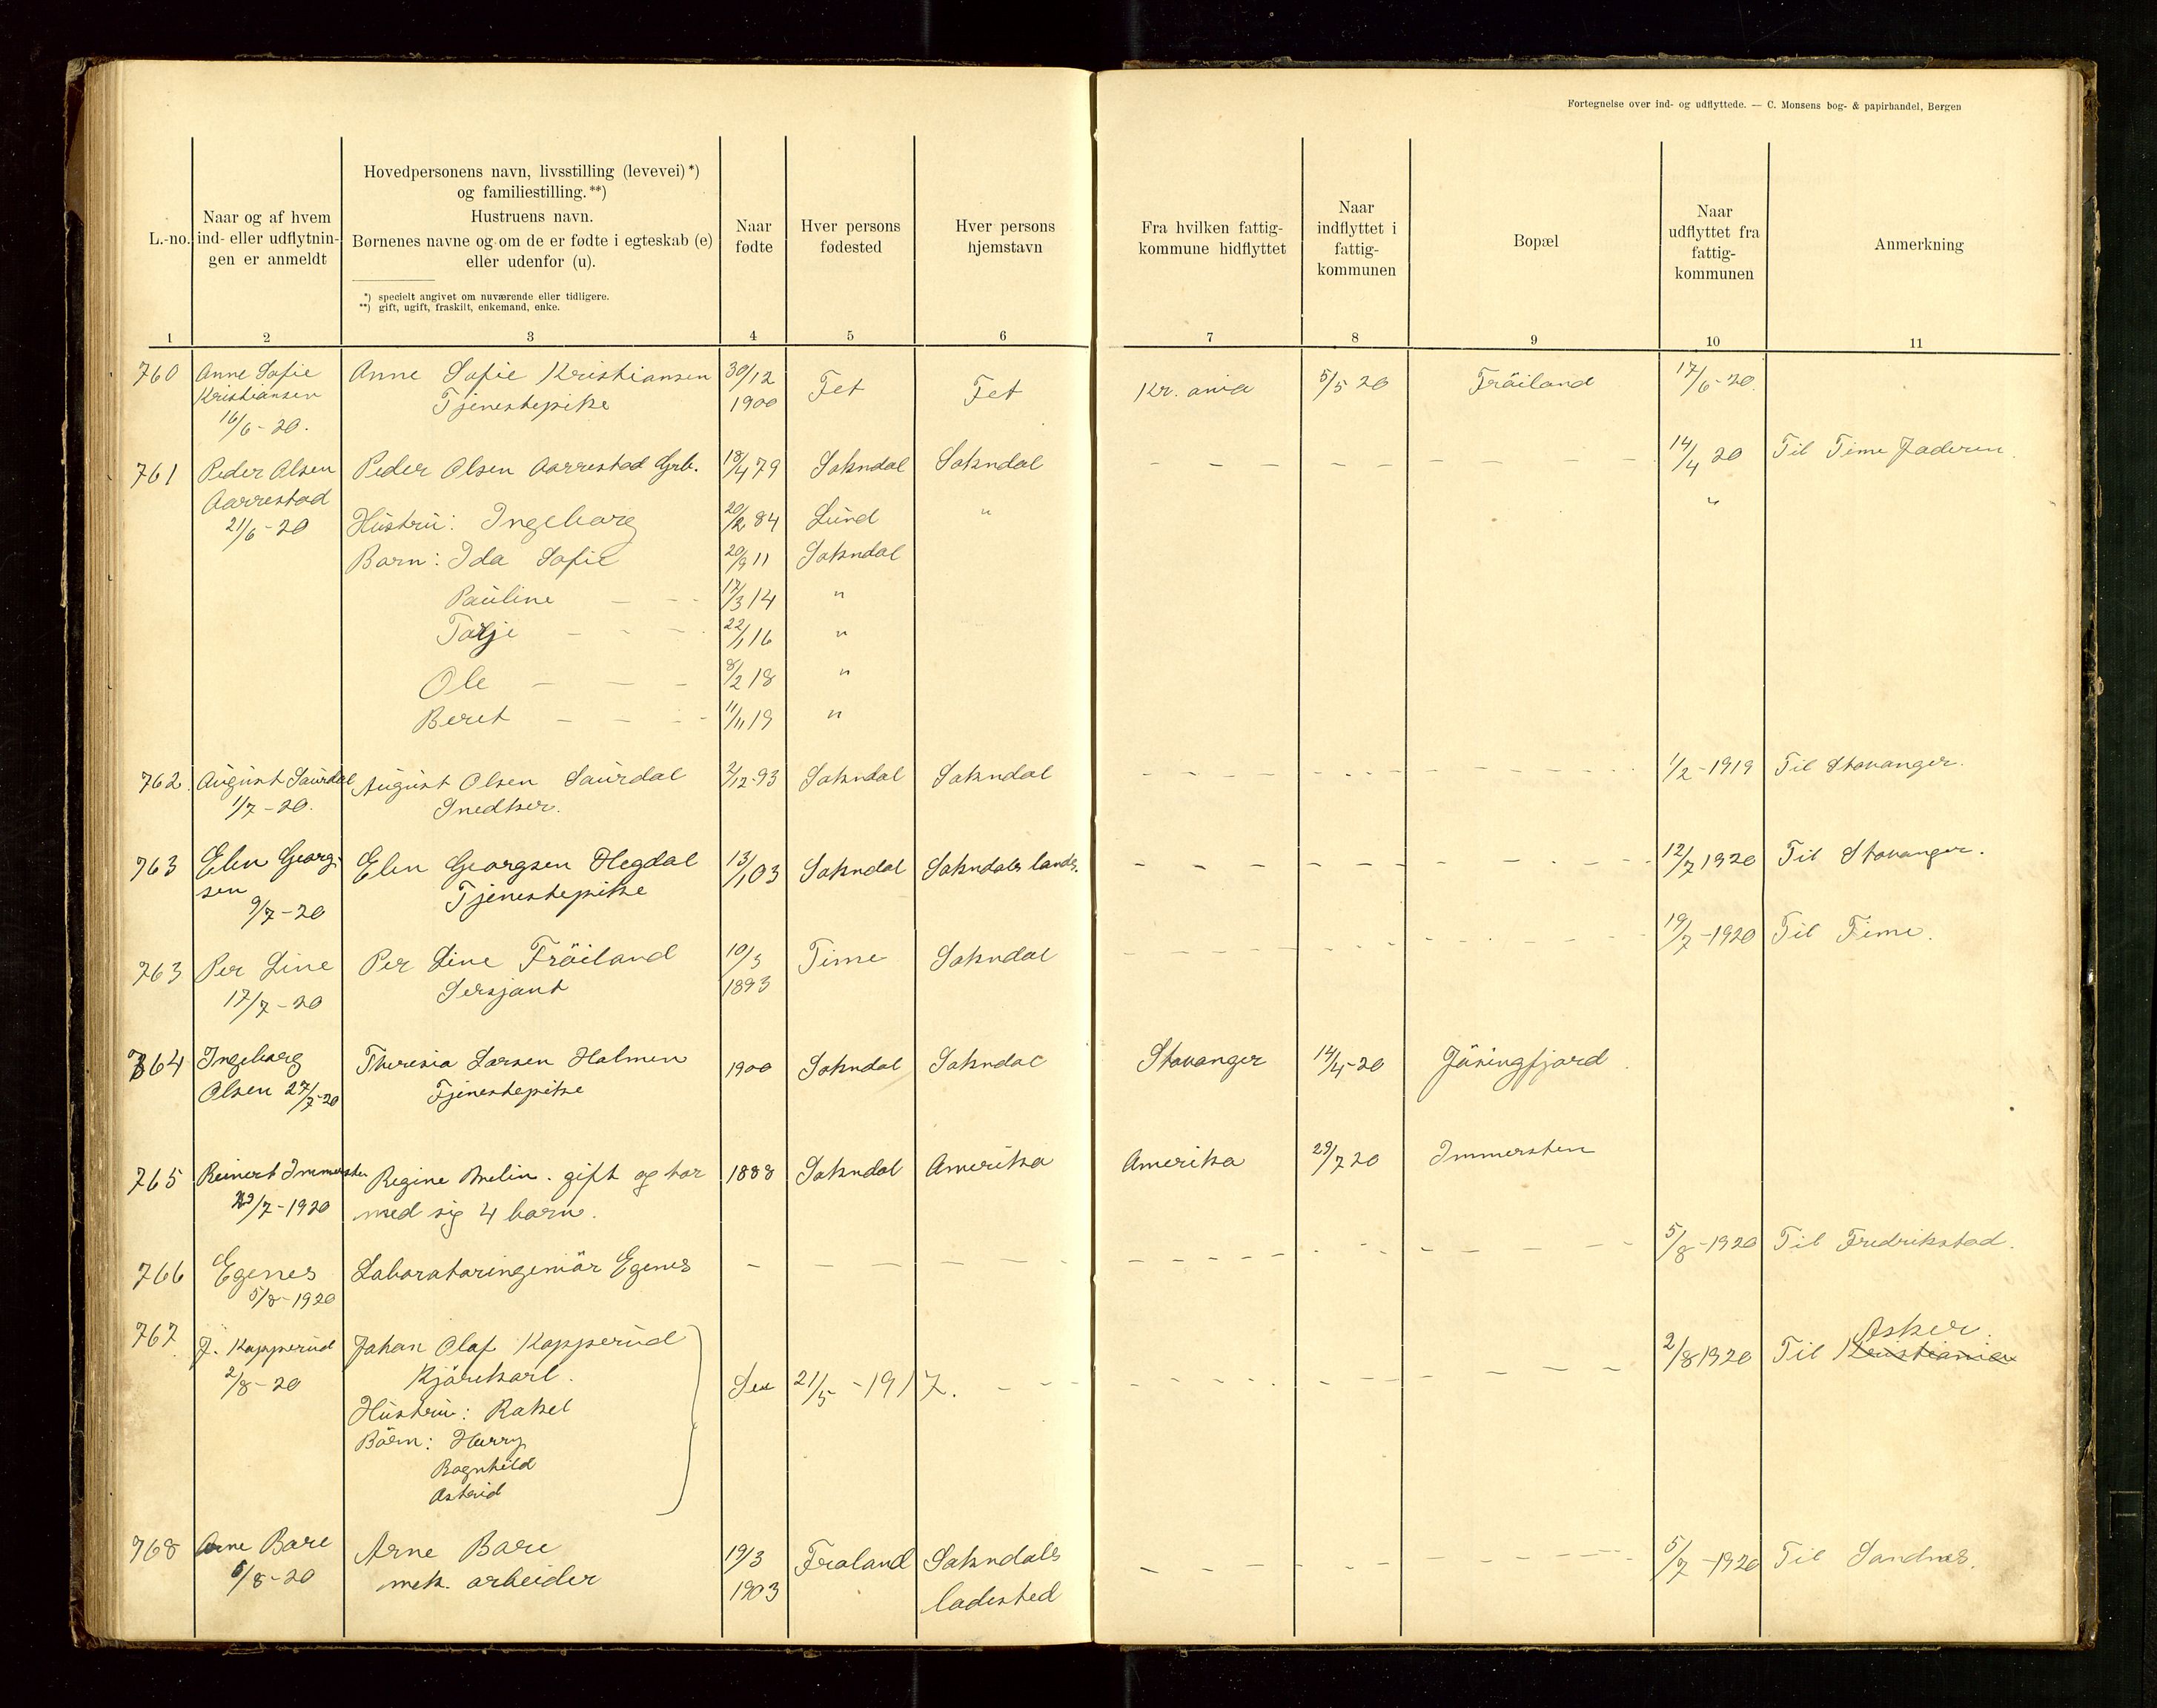 Fortegnelse over ind- og udflyttede. — C. Monsens bog- & papirhandel, Bergen
L.-no.
Naar og af hvem
ind- eller udflytnin-
gen er anmeldt
Hovedpersonens navn, livsstilling (levevei)*)
og familiestilling.**)
Hustruens navn.
Børnenes navne og om de er fødte i egteskab (e)
eller udenfor (u).
*) specielt angivet om nuværende eller tidligere.
**) gift, ugift, fraskilt, enkemand, enke.
Naar
fødte
Hver persons
fødested
Hver persons
hjemstavn
Fra hvilken fattig-
kommune hidflyttet
Naar
indflyttet i
fattig-
kommunen
Bopæl
Naar
udflyttet fra
fattig-
kommunen
Anmerkning
1 2 3 4 5 6 7 8 9 10 11
760 Anne Sofie Anne Sofie Kristiansen 30/12 Fet Fet Kr. ania 5/5 20 Fröiland 17/6-20.
Kristiansen Tjenestepike 1900
16/6-20.
761 Peder Olsen Peder Olsen Aarrestad Grb. 18/4 79 Sokndal Sokndal — — — — — — — — — 14/4 20 Til Time Jaderen.
Aarrestad
21/6-20 Hustru: Ingeborg 20/2 84 Lund " "
Barn: Ida Sofie 20/9 11 Sokndal
Pauline — - - 17/3 14 "
Tolje — - - 22/1 16 "
Ole — — — 8/2 18 "
Beret — — - - 11/11 19 "
762. August Saurdal August Olsen Saurdal 2/12-93 Sokndal Sokndal - - - - - - - - - - 1/2-1919 Til Stavanger.
1/7-20. Snedker.
763 Elen Georg- Elen Georgsen Hegdal 13/1 03 Sokndal Sokndals lands. - - - - - - - - - 12/7 1920 Til Stavanger.
sen Tjenestepike
9/7-20
763 Per Line Per Line Fröiland 10/3 Time Sokndal - - - - - - - - - 19/7-1920 Til Time.
17/7-20 Sersjant 1893
764 Ingeborg Theresia Larsen Holmen 1900 Sokndal Sokndal Stavanger 14/4-20 Jösingfjord.
Olsen 27/7-20 Tjenestepike
765 Reinert Immersten Regine Melin. gift og har 1888 Sokndal Amerika Amerika 29/7 20 Immersten
29/7-1920 med sig 4 barn.
766 Egenes Laboratoringeniör Egenes — — — — — - - - - - - - - 5/8-1920 Til Fredrikstad.
5/8-1920
767. J. Kopperud Johan Olaf Kopperud 2/8 1920 Til Kristiania Asker.
2/8-20 Kjörekarl. Se 21/5-1917. - - - - - - - - -
Hustru: Rakel
Börn: Harry
Ragnhild
Astrid
768 Arne Bore Arne Bore 19/3 Froland Sokndals - - - - - - - - - 5/7-1920 Til Sandnes.
6/8-20 mek. arbeider 1903 ladested